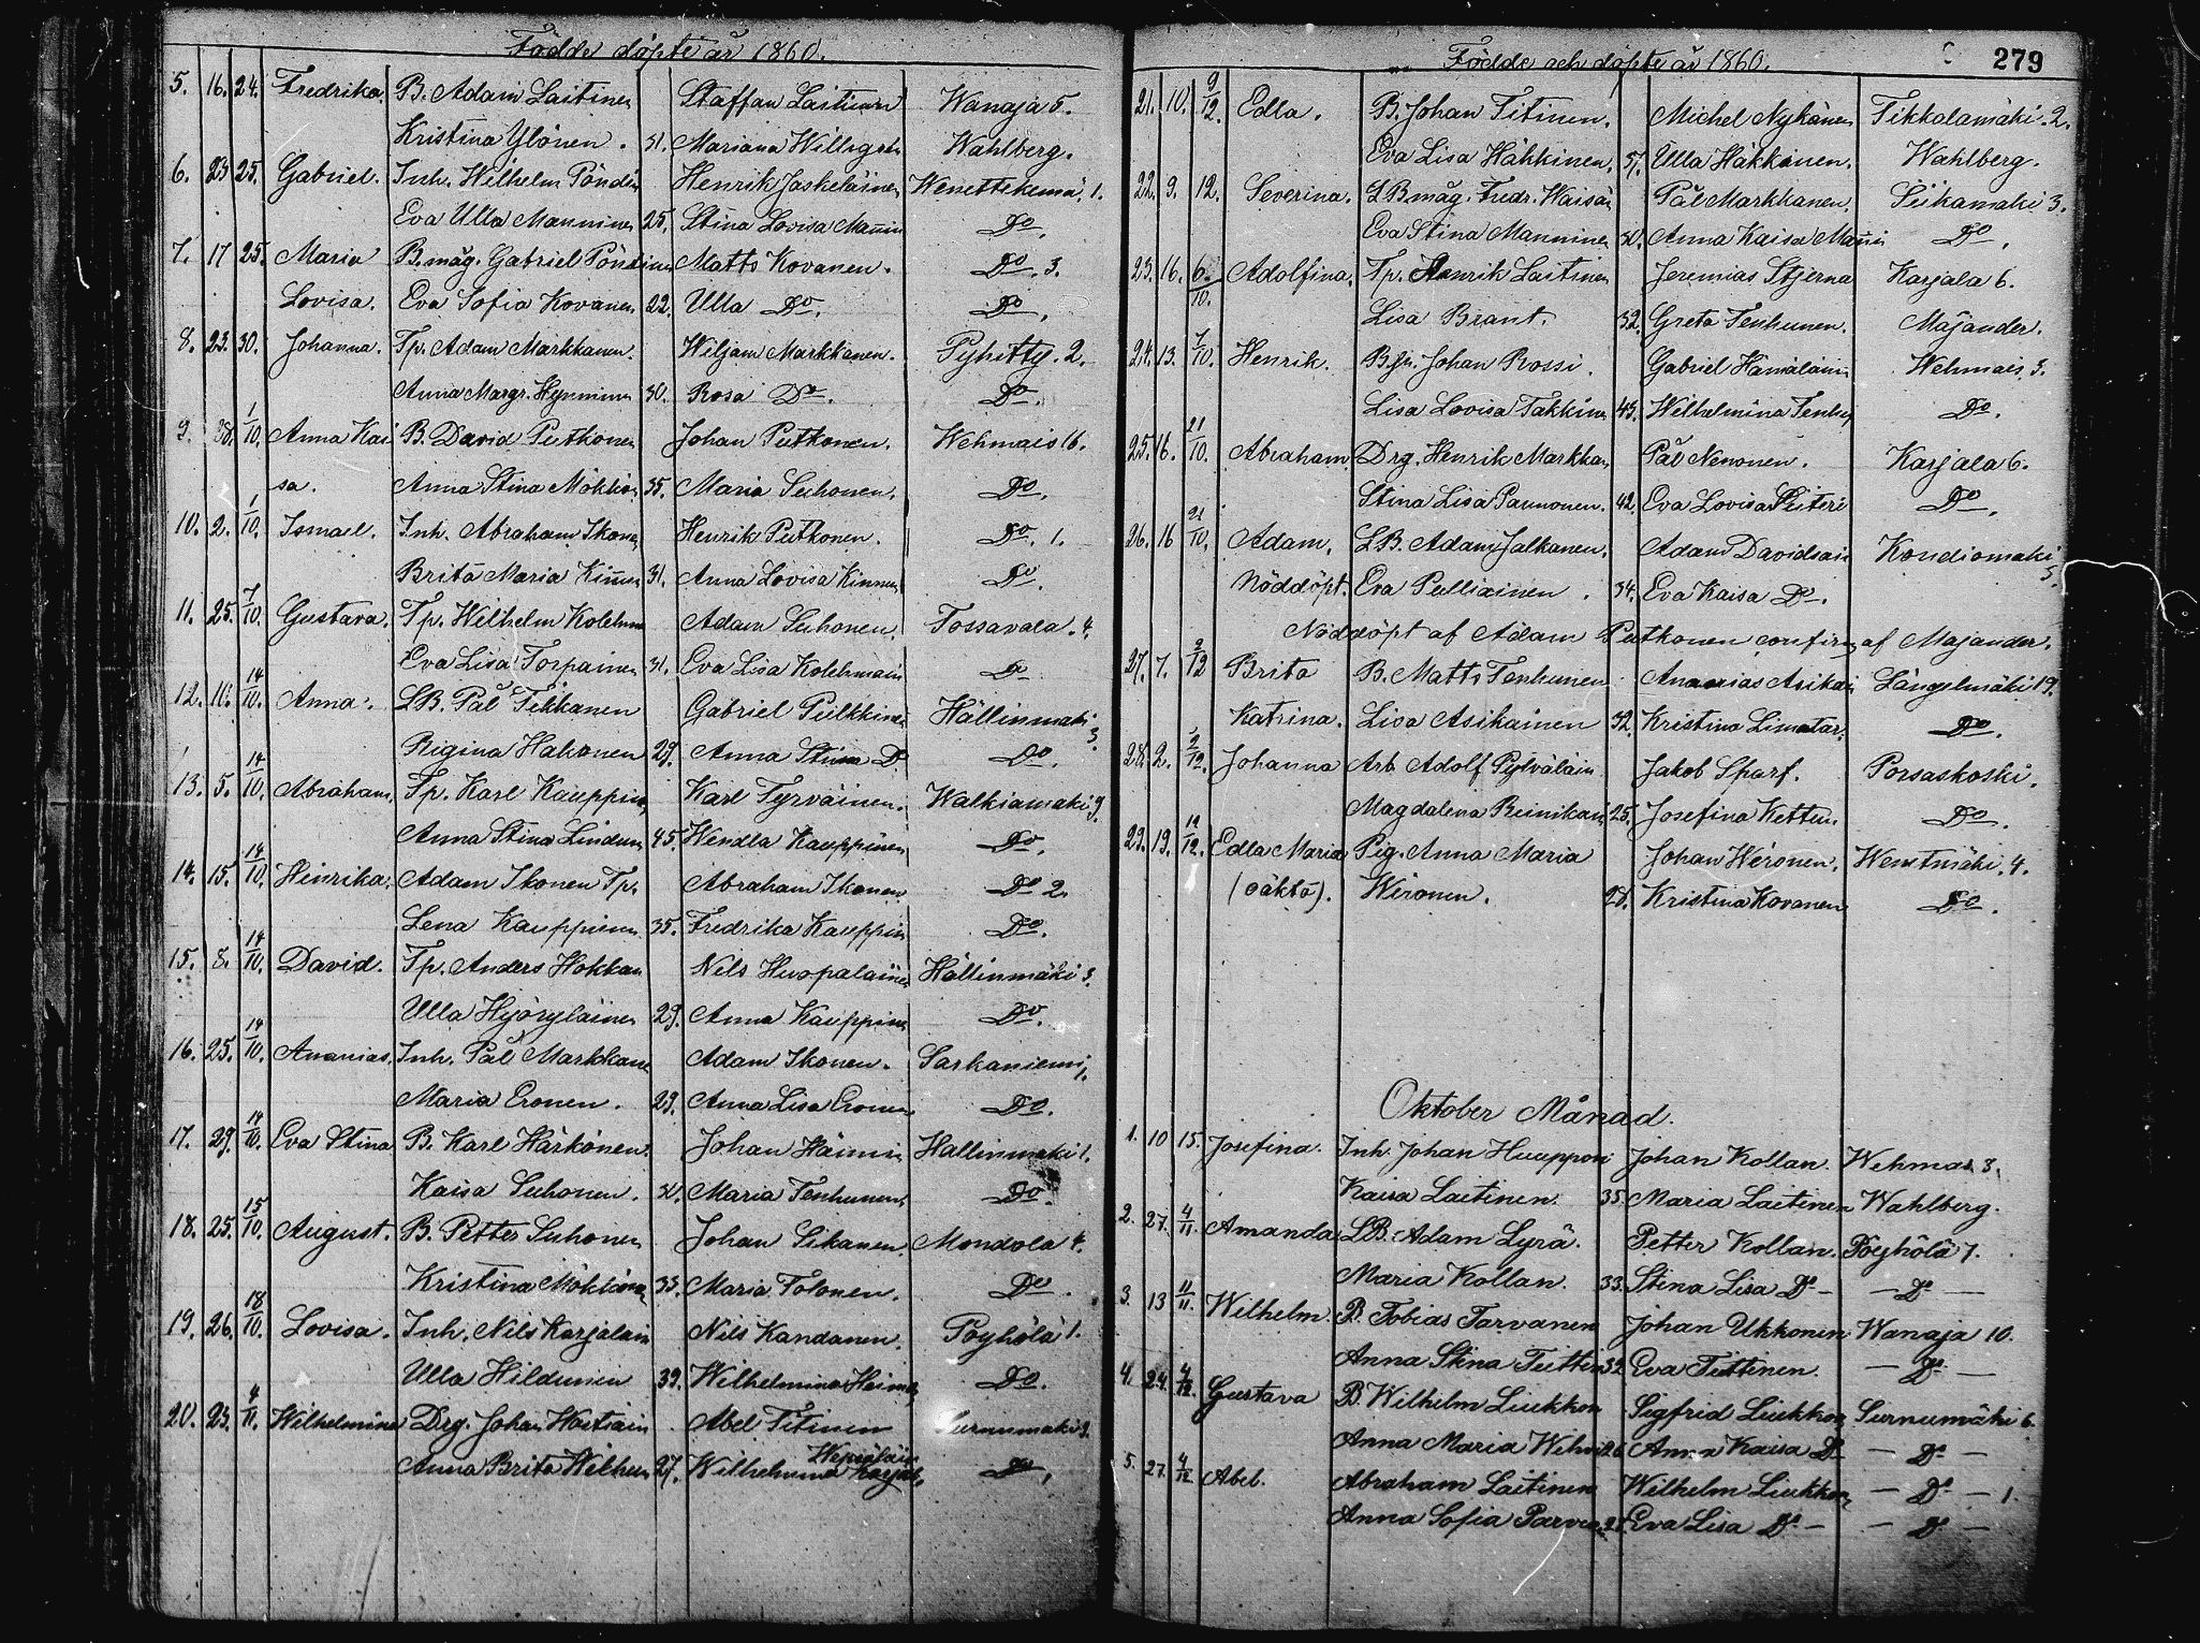 Födde döpte år 1860.
5. 16. 24. Fredrika. B. Adam Laitinen Staffan Laitinen Wanaja 5.
Kristina Ylönen. 31. Mariana Willigren Wahlberg.
6. 23 25. Gabriel. Inh. Wilhelm Pöndin Henrik Jaskeläinen Wenettekemä 1.
Eva Ulla Manninen 25. Stina Lovisa Mannin Do.
7. 17 25. Maria B. måg. Gabriel Pöndinen Matts Kovanen. Do. 3.
Lovisa. Eva Sofia Kovanen 22. Ulla Do. Do.
8. 23. 30. Johanna. Tp. Adam Markkanen. Wiljam Markkanen. Pyhitty. 2.
Anna Margr. Hynninen 30. Rosa Do. Do.
9. 28. 1/10. Anna Kai B. David Putkonen Johan Putkonen. Wehmais 16.
sa. Anna Stina Mökkön 35. Maria Suhonen. Do.
10. 2. 1/10. Ismael. Inh. Abraham Ikonen Henrik Putkonen. Do. 1.
Brita Maria Kinnen 31. Anna Lovisa Kinnen Do.
11. 25. 7/10. Gustava. Tp. Wilhelm Kolehm Adam Suhonen. Tossavala. 4.
Eva Lisa Torpainen 31. Eva Lisa Kolehmain Do
12. 10. 14/10. Anna. LB. Pål Tikkanen Gabriel Pulkkinen Hällinmäki 3.
Rigina Hakonen 29. Anna Stina Do Do.
13. 5. 14/10. Abraham. Tp. Karl Kauppin Karl Tyrväinen. Walkiamäki 9.
Anna Stina Lindun 45. Wendla Kauppinen Do.
14. 15. 14/10. Hinrika. Adam Ikonen Tp. Abraham Ikonen Do 2.
Lena Kauppinen 35. Fredrika Kauppin Do.
15. 8. 14/10. David. Tp. Anders Hokkan Nils Huopalainen Hällinmäki 3.
Ulla Hyöryläinen 29. Anna Kauppinen Do.
16. 25. 14/10. Ananias. Inh. Pål Markkane Adam Ikonen. Sarkaniemi 1.
Maria Eronen. 29. Anna Lisa Eronen Do.
17. 29. 14/10. Eva Stina B. Karl Härkönen. Johan Häinin Hallinmäki 1.
Kaisa Suhonen. 30. Maria Tenhunen Do.
18. 25. 15/10. August. B. Petter Suhonen Johan Sikanen. Mondola 4.
Kristina Mökkönen 33. Maria Tolonen. Do.
19. 26. 18/10. Lovisa. Inh. Nils Karjalain Nils Kandanen. Pöyhölä 1.
Ulla Hildunen 39. Wilhelmina Heinon Do.
20. 23. 4/11. Wilhelmina Drg. Johan Hartiain Abel Titinen Surnumäki 9.
Anna Brita Wilhun 27. Wilhelmina Wepsäläin Do.
Födde och döpte år 1860. 279
21. 10. 9/12. Edla. B. Johan Titinen. Michel Nykänen Tikkalamäki. 2.
Eva Lisa Häkkinen. 37. Ulla Häkkänen. Wahlberg.
22. 9. 12. Severina. LB måg. Fredr. Waisän Pål Markkanen. Siikamäki 3.
Eva Stina Manninen 30. Anna Kaisa Mannin Do.
23. 16. 6/10. Adolfina. Tp. Henrik Laitinen Jeremias Stjerna Karjala 6.
Lisa Briant. 32. Greta Tenhunen. Majander.
24. 13. 7/10. Henrik. B.fr. Johan Rossi. Gabriel Hämäläinen Wehmais. 3.
Lisa Lovisa Takkinen 43. Wilhelmina Tenhu Do.
25. 16. 21/10. Abraham Drg. Henrik Markkan Pål Nenonen. Karjala 6.
Stina Lisa Paunonen. 42. Eva Lovisa Puteri Do.
26. 16 21/10. Adam. LB. Adam Jalkanen. Adam Davidsain Kondiomäki 5.
Nöddöpt. Eva Pulliainen. 34. Eva Kaisa Do.
Nöddöpt af Adam Putkonen confirm af Majander.
27. 7. 2/12 Brita B. Matts Tenhunen Ananias Asikai Längelmäki 19.
Katrina. Lisa Asikainen 32. Kristina Limatai. Do.
28. 2. 2/12. Johanna Arb. Adolf Pylväläin Jakob Sparf. Porsaskoski.
Magdalena Reinikain 25. Josefina Kettun. Do.
29. 19. 19/12. Edla Maria Pig. Anna Maria Johan Weronen. Wenetmäki. 4.
(oäkta). Wironen. 28. Kristina Kovanen Do.
Oktober Månad.
1. 10 15. Josefina. Inh. Johan Huupponi Johan Kollan. Wehmas 3.
Kaisa Laitinen. 35. Maria Laitinen Wahlberg.
2. 27. 4/11. Amanda LB. Adam Lyrä. Petter Kollan. Pöyhölä 7.
Maria Kollan. 33. Stina Lisa Do — Do —
3. 13 11/11. Wilhelm. B. Tobias Tarvanen Johan Ukkonen Wanaja 10.
Anna Stina Tuttin 32 Eva Tuttinen. — Do —
4. 24. 4/12. Gustava B. Wilhelm Liukkon Sigfrid Liukkon Surnumäki 6.
Anna Maria Wehvi 26 Anna Kaisa Do — Do —
5. 27. 4/12. Abel. Abraham Laitinen Wilhelm Liukkon — Do — 1.
Anna Sofia Parvi Eva Lisa Do — — Do —